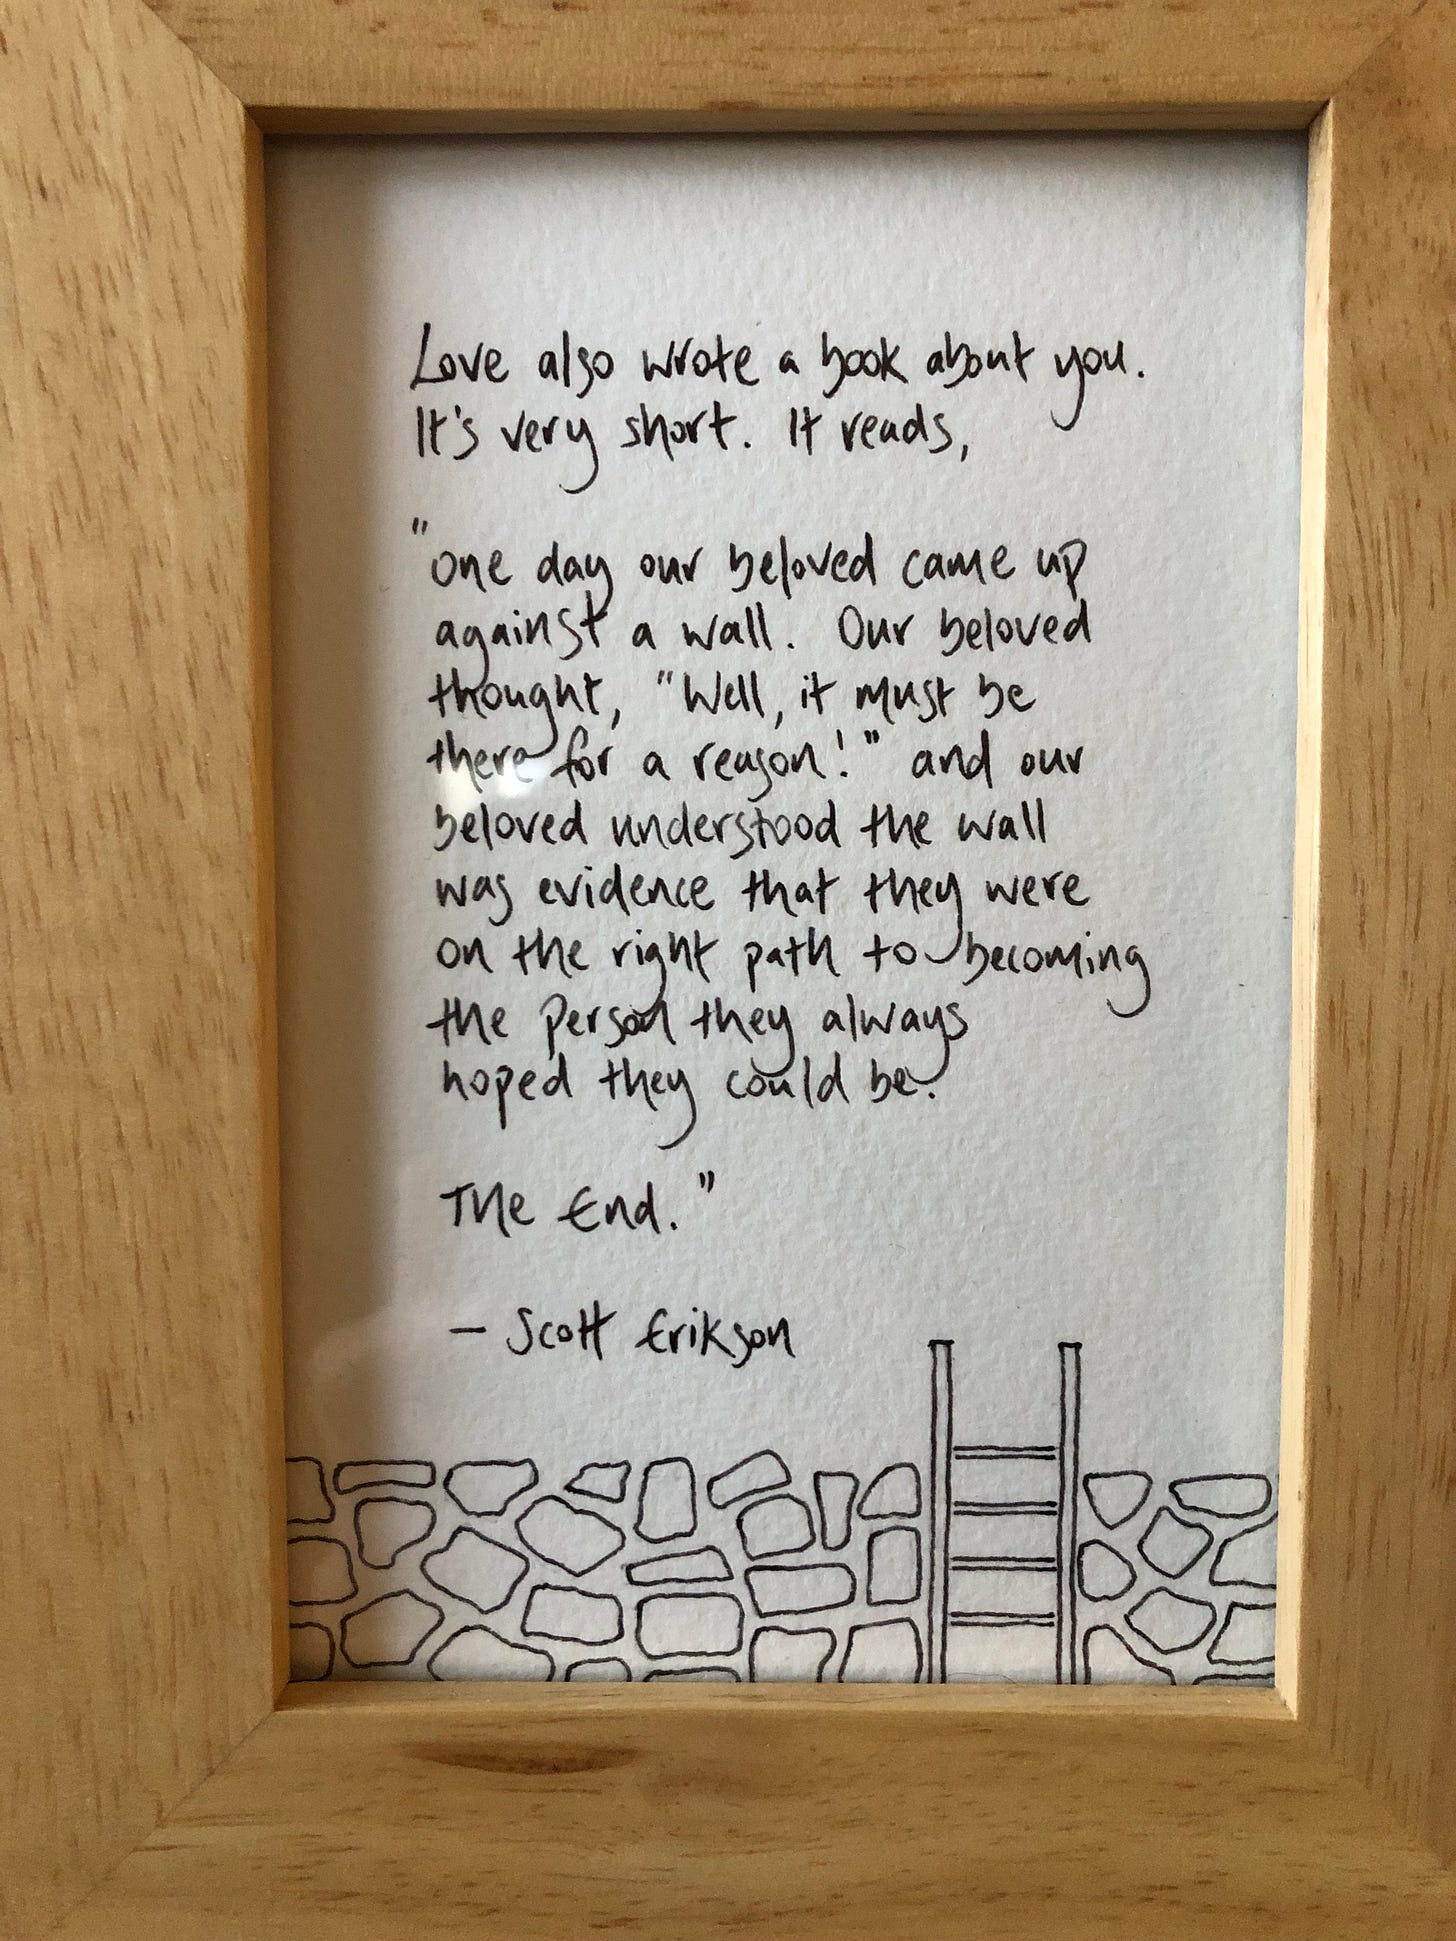 Love also wrote a book about you.
It's very short. It reads,
"One day our beloved came up
against a wall. Our beloved
thought, "Well, it must be
there for a reason!" and our
beloved understood the wall
was evidence that they were
on the right path to becoming
the person they always
hoped they could be.
The End."
— Scott Erikson